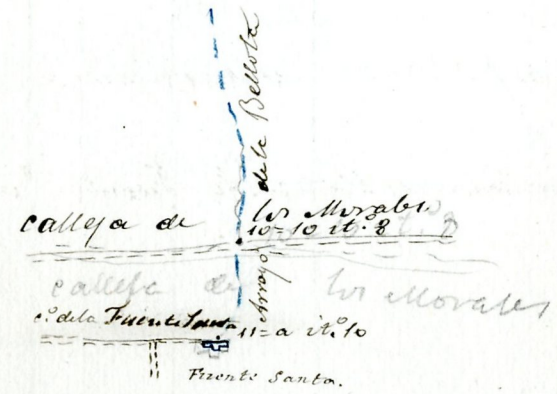 Arroyo de la Bellota
calleja de los Morales
10=10 it. 8
calleja de los Morales
c.º de la Fuente Santa
11=a it.º 10
Fuente Santa.